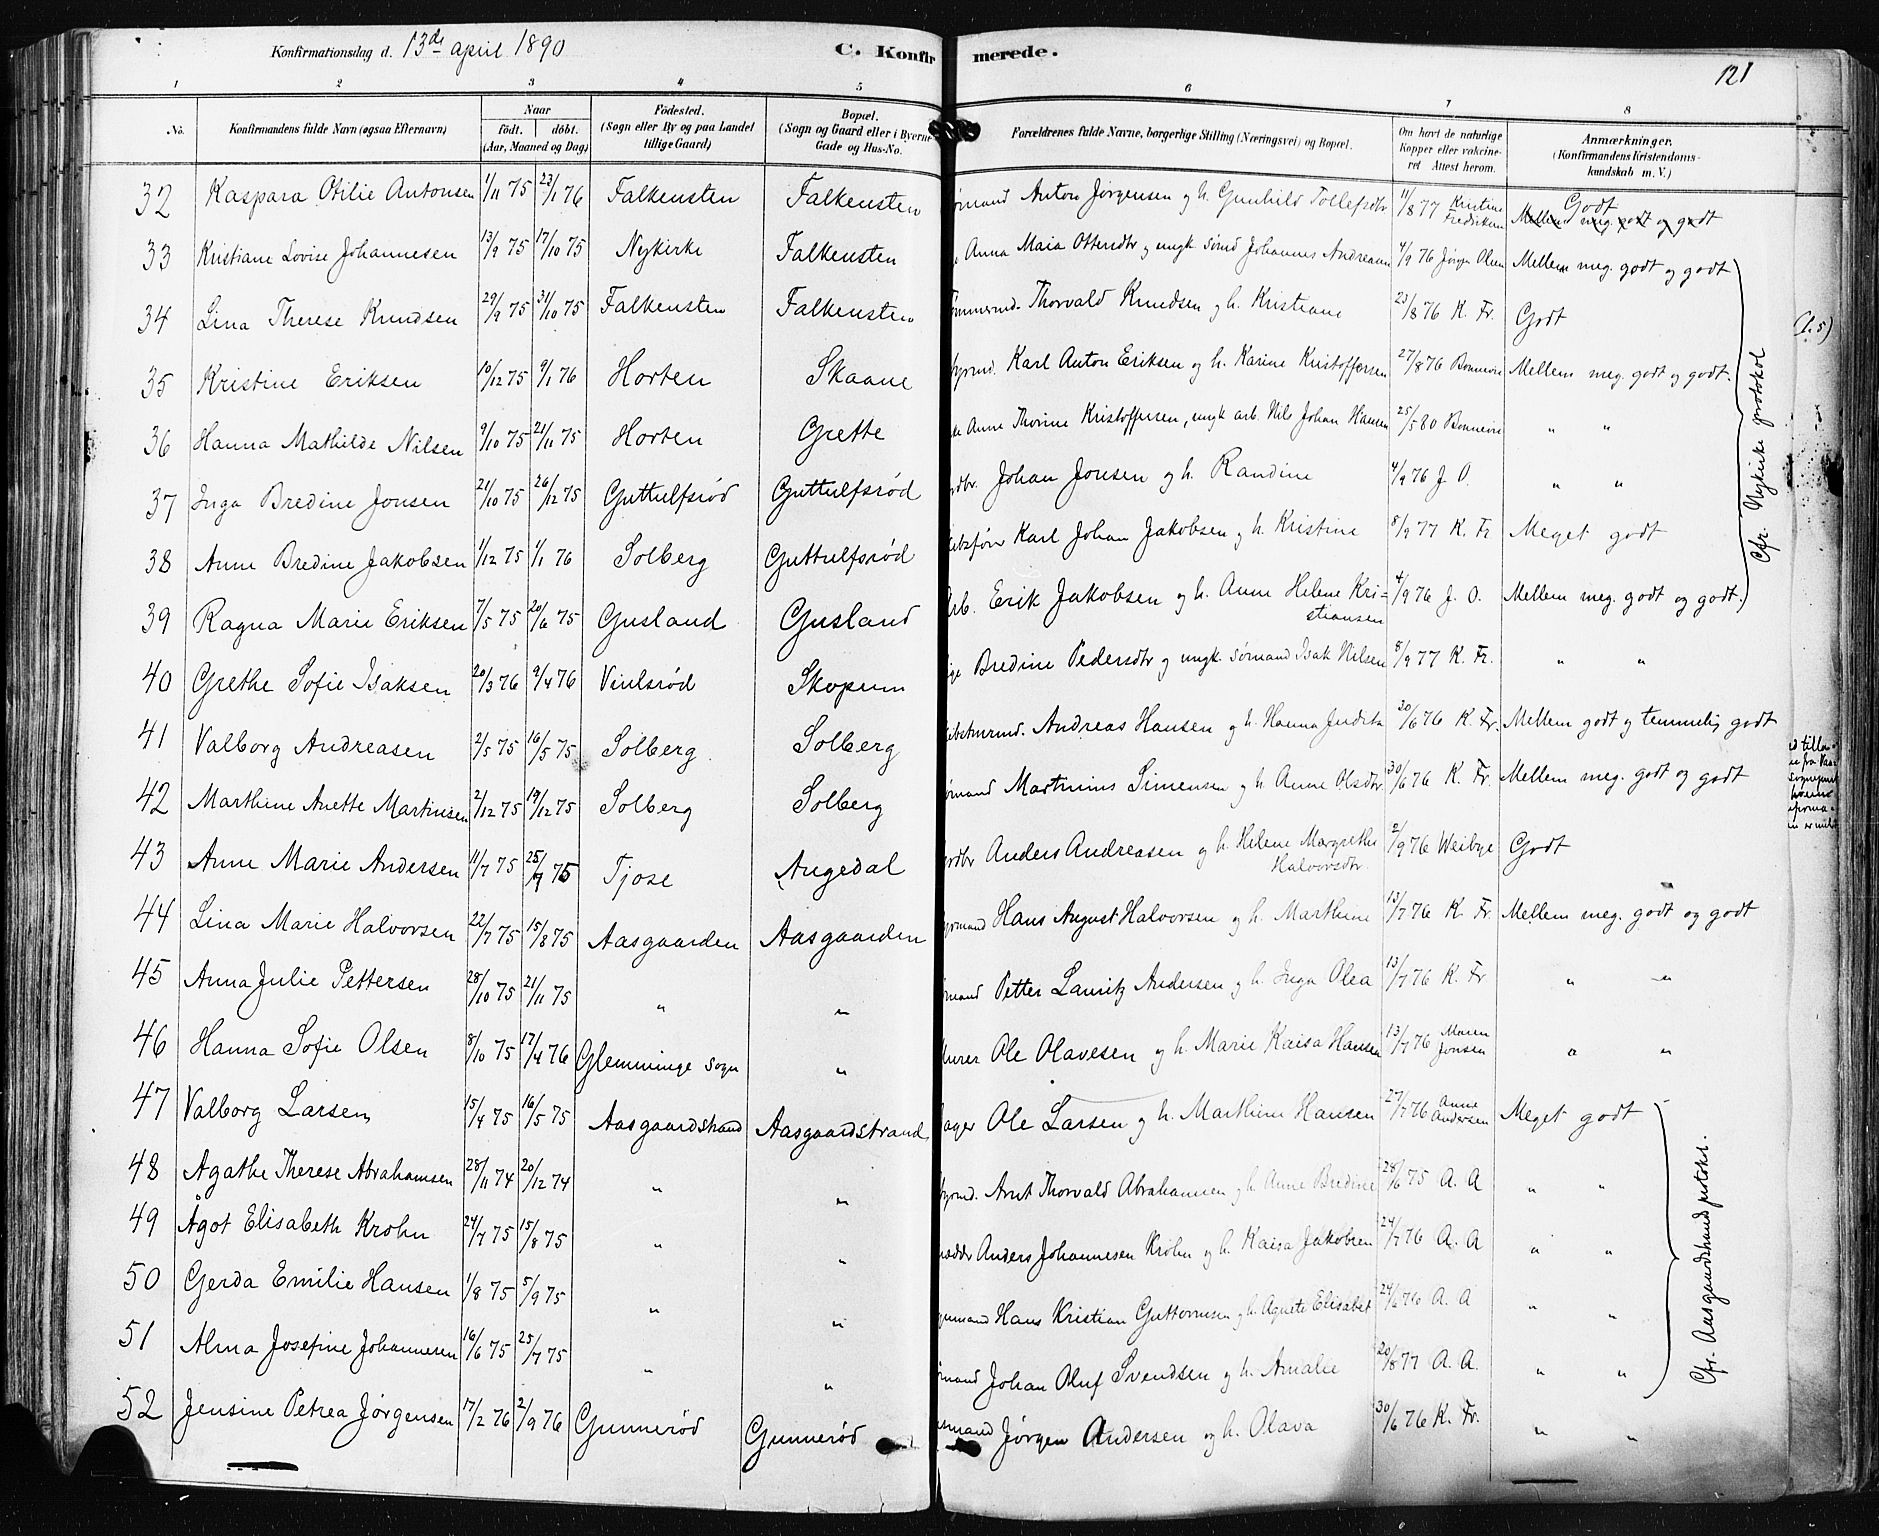 Konfirmationsdag d. 13de april 1890 C. Konfirmerede. 121
1 2 3 4 5 6 7 8
No. Konfirmandens fulde Navn (ogsaa Efternavn) Naar født. døbt. (Aar, Maaned og Dag) Fødested. (Sogn eller By og paa Landet tillige Gaard) Bopæl. (Sogn og Gaard eller i Byerne Gade og Hus-No. Forældrenes fulde Navne, borgerlige Stilling (Næringsvei) og Bopæl. Om havt de naturlige Kopper eller vakcineret Attest herom. Anmærkninger. (Konfirmandens Kristendomskundskab m. V.)
32 Kaspara Otilie Antonsen 1/11 75 23/1 76 Falkensten Falkensten Anton Jørgensen og h. Gunhild Tollefsdtr 11/8 77 Kristine Fredriksen Godt Mellem meg. godt og godt
33 Kristiane Lovise Johannesen 13/9 75 17/10 75 Nykirke Falkensten Anna Maia Ottersdtr og ungk. sømd Johannes Andreasen 4/9 76 Jørgen Olsen Mellem meg. godt og godt
34 Lina Therese Knudsen 29/9 75 31/10 75 Falkensten Falkensten Thorvald Knudsen og h. Kristiane 23/8 76 K. Fr. Godt
35 Kristine Eriksen 10/12 75 9/1 76 Horten Skaane Karl Anton Eriksen og h. Karine Kristoffersen 27/8 76 Bonnevie Mellem meg. godt og godt.
36 Hanna Mathilde Nilsen 9/10 75 21/11 75 Horten Grette Anne Thorine Kristoffersen, ungk arb. Nils Johan Hansen 25/5 80 Bonnevie " "
37 Inga Bredine Jonsen 21/10 75 26/12 75 Guttulfsrød Guttulfsrød Johan Jonsen og h. Randine 4/9 76 J. O. " "
38 Anne Bredine Jakobsen 1/12 75 1/1 76 Solberg Guttulfsrød Karl Johan Jakobsen og h. Kristine 8/9 77 K. Fr Meget godt
39 Ragna Marie Eriksen 7/5 75 20/6 75 Gusland Gusland Arb. Erik Jakobsen og h. Anne Helene Kristiansen 4/9 76 J. O. Mellem meg. godt og godt.
Cfr. Nykirke protokol
40 Grethe Sofie Isaksen 20/3 76 9/4 76 Viulsrød Skopum Bredine Pedersdtr og ungk. sømand Isak Nilsen 8/9 77 K. Fr. " "
41 Valborg Andreasen 2/5 75 16/5 75 Solberg Solberg Andreas Hansen og h. Hanna Judita 30/6 76 K. Fr. Mellem godt og temmelig godt
42 Marthine Anette Martinsen 2/12 75 19/12 75 Solberg Solberg Martinius Simensen og h. Anne Olsdtr 30/6 76 K. Fr. Mellem meg. godt og godt
43 Anne Marie Andersen 11/7 75 25/7 75 Tjøse Augedal Anders Andreasen og h. Helene Margrethe Halvorsdtr 2/9 76 Weibye Godt
44 Lina Marie Halvorsen 22/7 75 15/8 75 Aasgaarden Aasgaarden Hans August Halvorsen og h. Marthine 13/7 76 K. Fr. Mellem meg. godt og godt
45 Anna Julie Pettersen 28/10 75 21/11 75 " " Petter Lauritz Andersen og h. Inga Olea 13/7 76 K. Fr " "
46 Hanna Sofie Olsen 8/10 75 17/4 76 Glemminge sogn " Ole Olavesen og h. Marie Kaisa Hansen 13/7 76 Maren Jonsen " "
47 Valborg Larsen 15/4 75 16/5 75 Aasgaardstrand Aasgaardstrand Ole Larsen og h. Marthine Hansen 27/7 76 Anne Andersen Meget godt
48 Agathe Therese Abrahamsen 28/11 74 20/12 74 " " Arnt Thorvald Abrahamsen og h. Anne Bredine 28/6 75 A. A " "
49 Ågot Elisabeth Krohn 24/7 75 15/8 75 " " Anders Johannesen Krohn og h. Kaisa Jakobsen 24/7 76 A. A " "
50 Gerda Emilie Hansen 1/8 75 5/9 75 " " Hans Kristian Guttormsen og h. Agnete Elisabet 24/6 76 A. A " "
51 Alma Josefine Johannesen 16/6 75 25/7 75 " " Johan Oluf Svendsen og h. Amalie 20/8 77 A. A. " "
Cfr. Aasgaardstrand protokol.
52 Jensine Petrea Jørgensen 17/2 76 2/9 76 Gunnerød Gunnerød Jørgen Andersen og h. Olava 30/6 76 K. Fr. " "